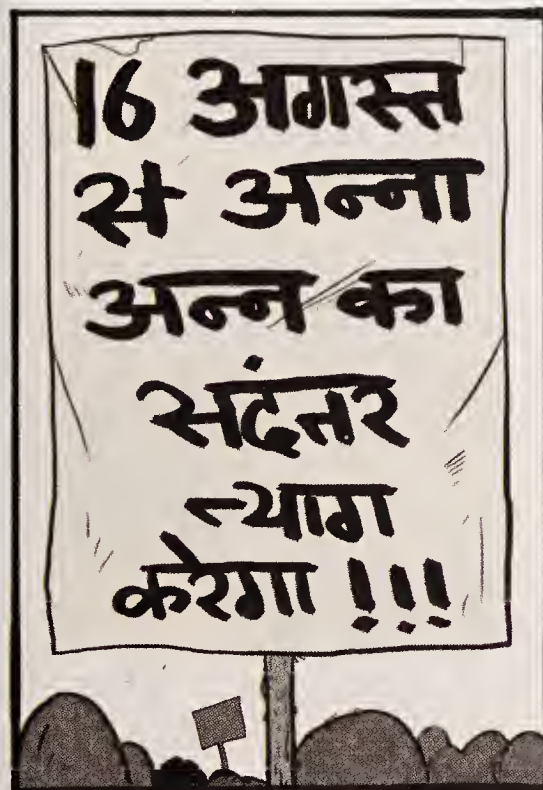 16 अगस्त
से अन्ना
अन्न का
सदंतर
त्याग
करेगा !!!